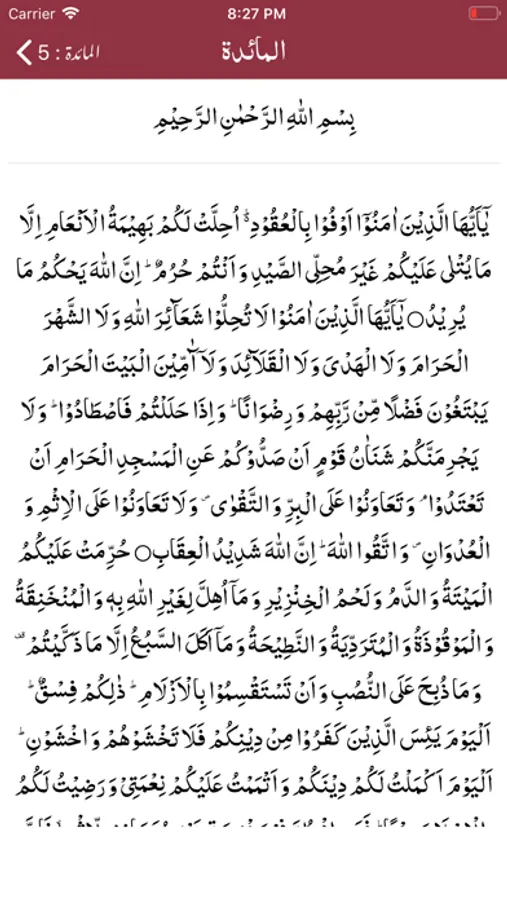 Carrier 8:27 PM
المائدة : 5 المآئدة
بِسْمِ اللّٰهِ الرَّحْمٰنِ الرَّحِيْمِ
يٰٓاَيُّهَا الَّذِيْنَ اٰمَنُوْٓا اَوْفُوْا بِالْعُقُوْدِ ۬ؕ اُحِلَّتْ لَكُمْ بَهِيْمَةُ الْاَنْعَامِ اِلَّا
مَا يُتْلٰى عَلَيْكُمْ غَيْرَ مُحِلِّى الصَّيْدِ وَاَنْتُمْ حُرُمٌ ؕ اِنَّ اللّٰهَ يَحْكُمُ مَا
يُرِيْدُ○ يٰٓاَيُّهَا الَّذِيْنَ اٰمَنُوْا لَا تُحِلُّوْا شَعَآئِرَ اللّٰهِ وَلَا الشَّهْرَ
الْحَرَامَ وَلَا الْهَدْىَ وَلَا الْقَلَآئِدَ وَلَآ آٰمِّيْنَ الْبَيْتَ الْحَرَامَ
يَبْتَغُوْنَ فَضْلًا مِّنْ رَّبِّهِمْ وَرِضْوَانًا ؕ وَاِذَا حَلَلْتُمْ فَاصْطَادُوْا ؕ وَلَا
يَجْرِمَنَّكُمْ شَنَاٰنُ قَوْمٍ اَنْ صَدُّوْكُمْ عَنِ الْمَسْجِدِ الْحَرَامِ اَنْ
تَعْتَدُوْا ۘ وَتَعَاوَنُوْا عَلَى الْبِرِّ وَالتَّقْوٰى ۪ وَلَا تَعَاوَنُوْا عَلَى الْاِثْمِ وَ
الْعُدْوَانِ ۪ وَاتَّقُوا اللّٰهَ ؕ اِنَّ اللّٰهَ شَدِيْدُ الْعِقَابِ○ حُرِّمَتْ عَلَيْكُمُ
الْمَيْتَةُ وَالدَّمُ وَلَحْمُ الْخِنْزِيْرِ وَمَآ اُهِلَّ لِغَيْرِ اللّٰهِ بِهٖ وَالْمُنْخَنِقَةُ
وَالْمَوْقُوْذَةُ وَالْمُتَرَدِّيَةُ وَالنَّطِيْحَةُ وَمَآ اَكَلَ السَّبُعُ اِلَّا مَا ذَكَّيْتُمْ ۟
وَمَا ذُبِحَ عَلَى النُّصُبِ وَاَنْ تَسْتَقْسِمُوْا بِالْاَزْلَامِ ؕ ذٰلِكُمْ فِسْقٌ ؕ
اَلْيَوْمَ يَئِسَ الَّذِيْنَ كَفَرُوْا مِنْ دِيْنِكُمْ فَلَا تَخْشَوْهُمْ وَاخْشَوْنِ ؕ
اَلْيَوْمَ اَكْمَلْتُ لَكُمْ دِيْنَكُمْ وَاَتْمَمْتُ عَلَيْكُمْ نِعْمَتِىْ وَرَضِيْتُ لَكُمُ